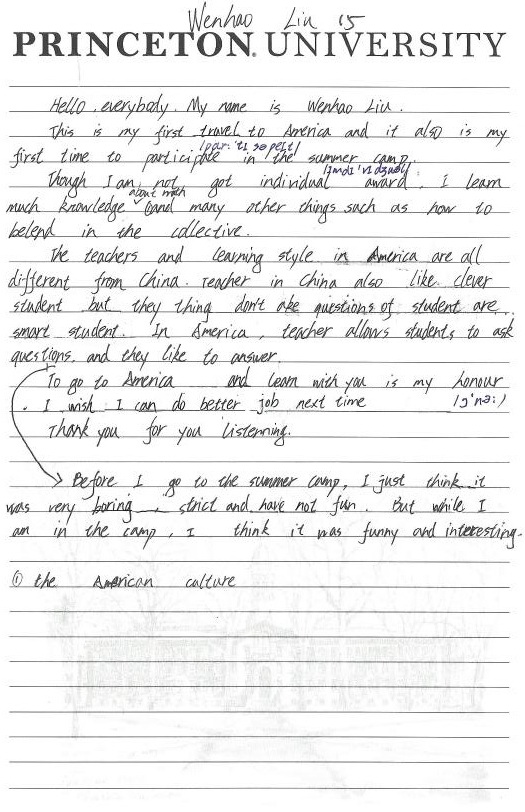 Wenhao Liu 15
PRINCETON UNIVERSITY
Hello, everybody. My name is Wenhao Liu.
This is my first travel to America and it also is my
first time to participate in the summer camp.
Though I am not got individual award, I learn
about math
much knowledge and many other things such as how to
belend in the collective.
The teachers and learning style in America are all
different from China. Teacher in China also like clever
student but they thing don't ake questions of student are
smart student. In America, teacher allows students to ask
questions, and they like to answer.
To go to America and learn with you is my honour
. I wish I can do better job next time
Thank you for you listenning.
Before I go to the summer camp, I just think it
was very boring, strict and have not fun. But while I
am in the camp, I think it was funny and interesting.
① the American culture